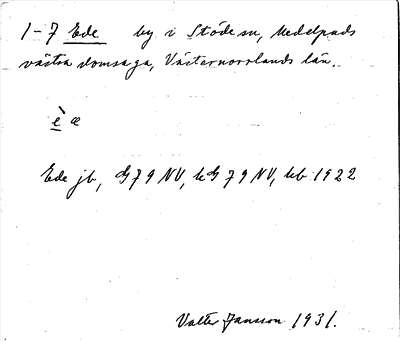 1-7 Ede by i Stöde sn, Medelpads
västra domsaga, Västernorrlands län.
è æ
Ede jb, G79NV, kG79NV, kb 1922
Valter Jansson 1931.